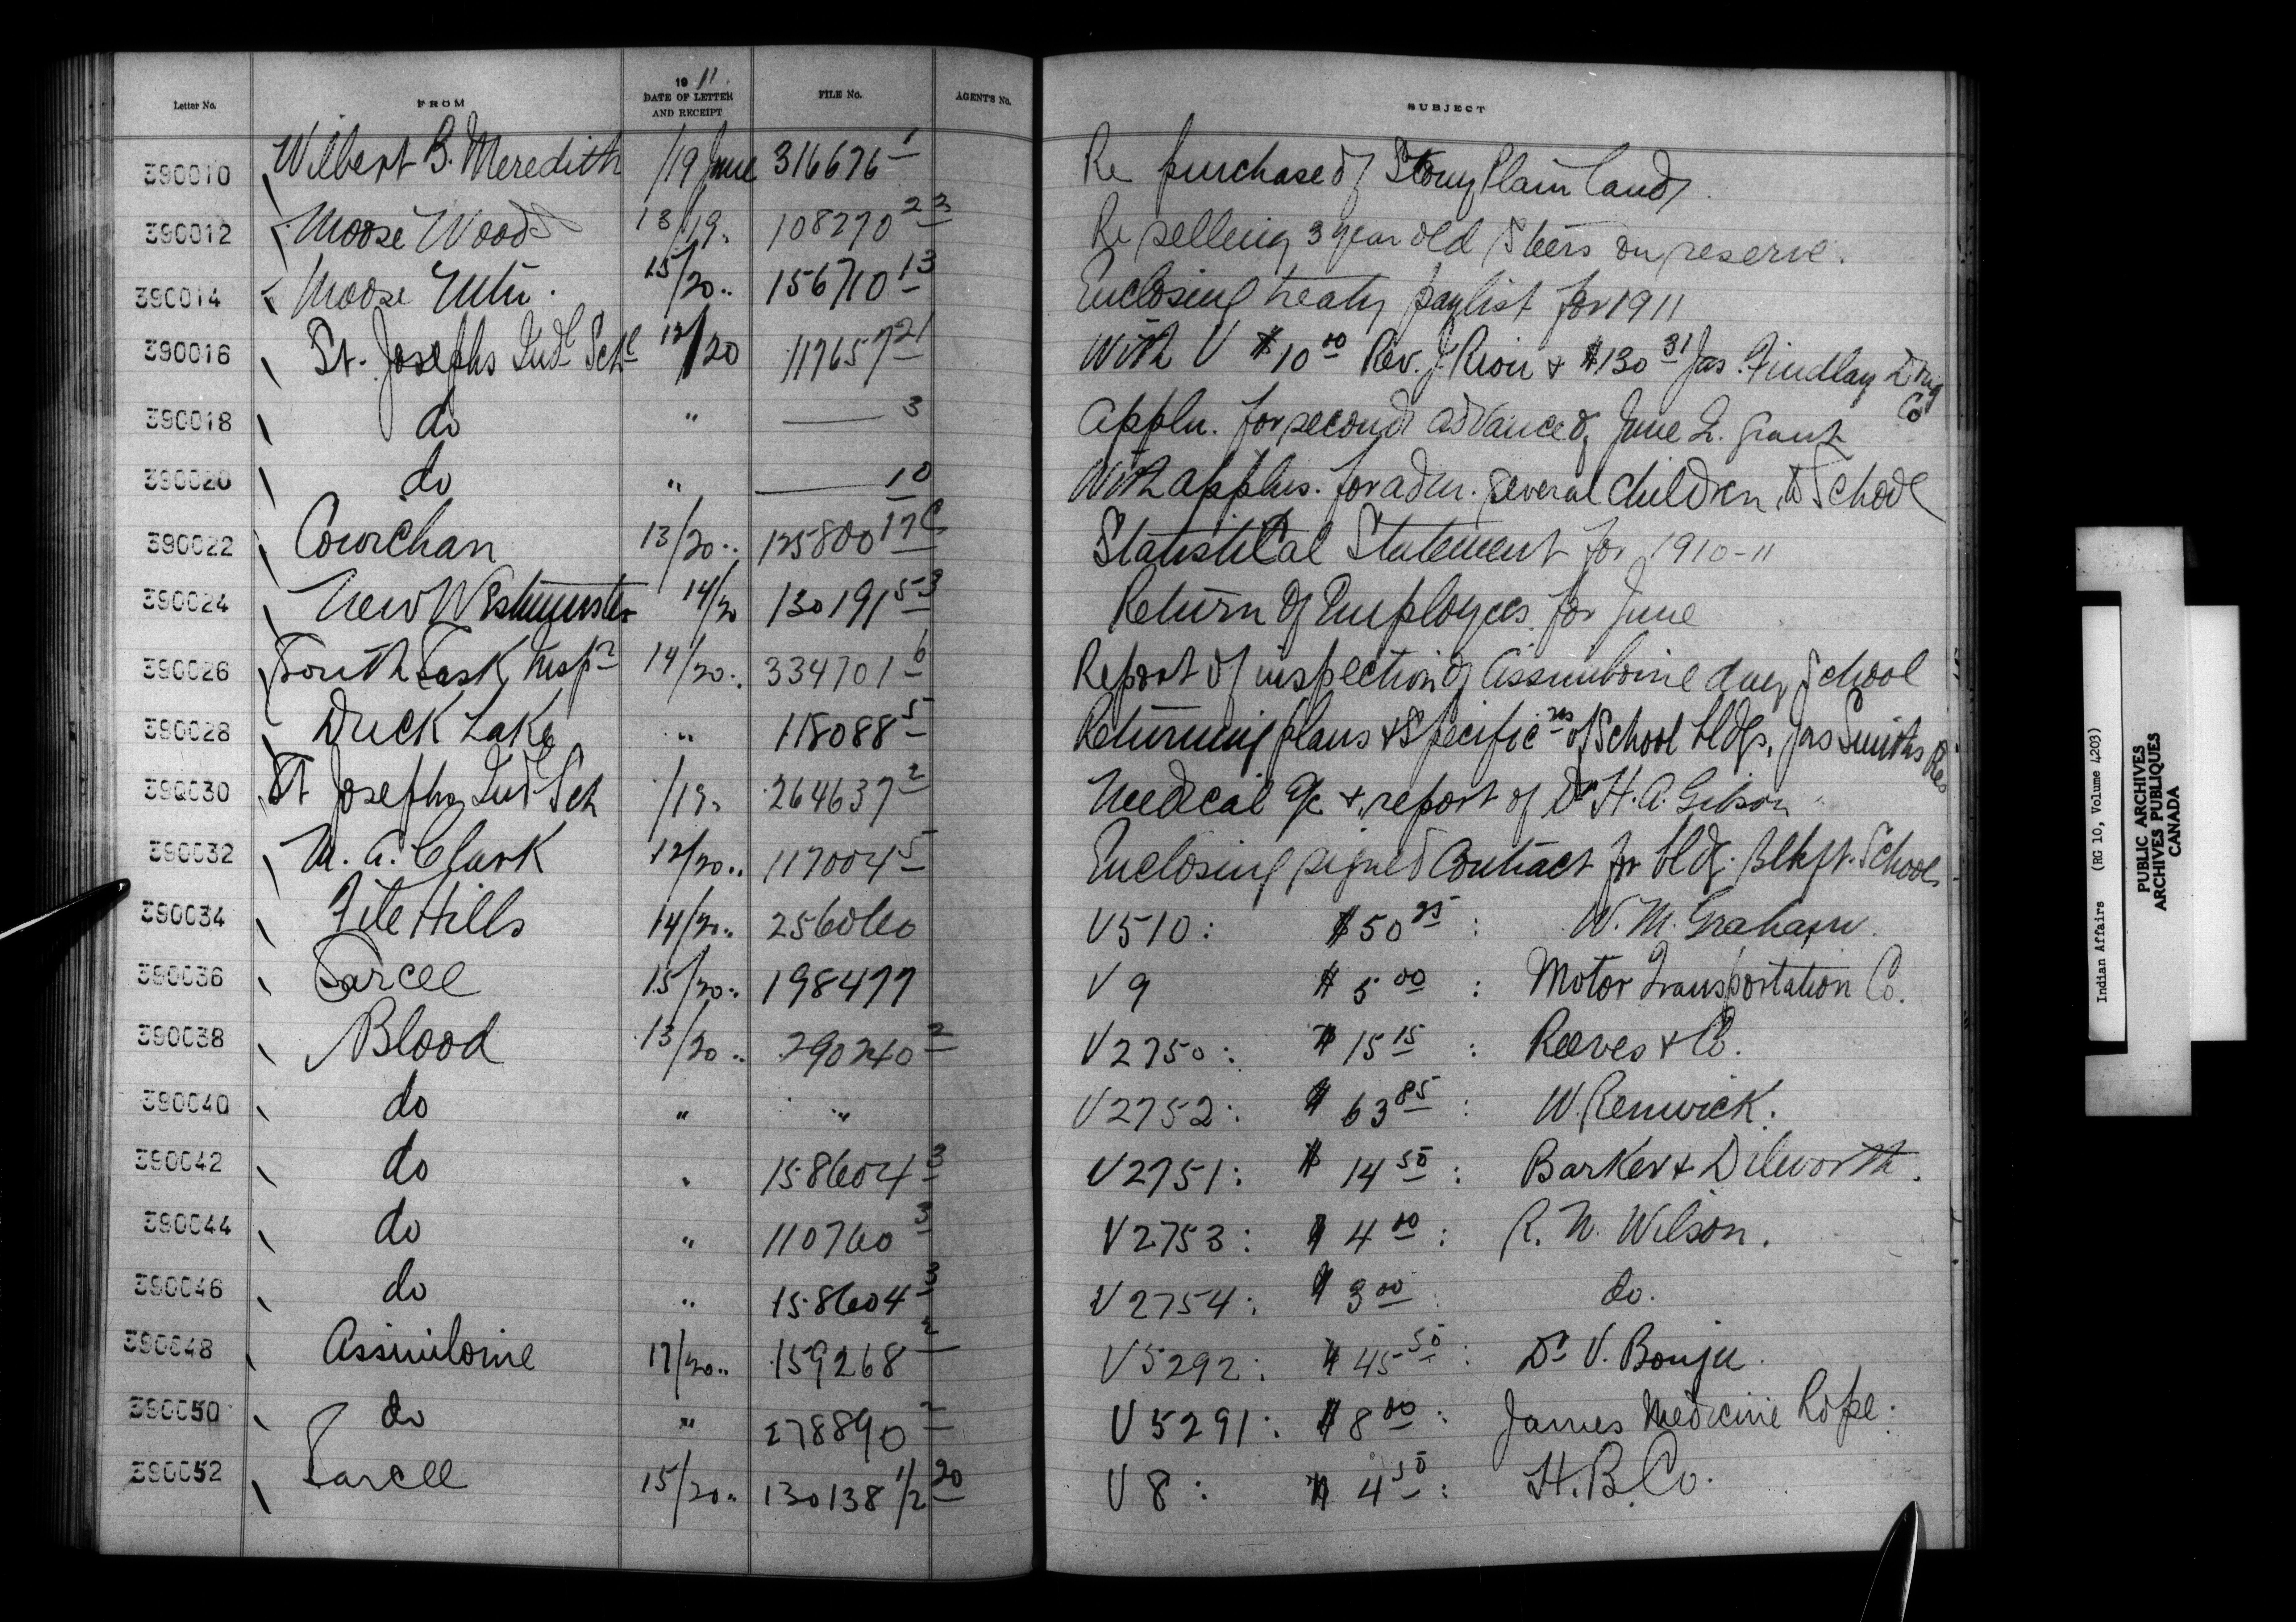 Letter No. FROM 1911. DATE OF LETTER AND RECEIPT FILE No. AGENTS No. SUBJECT
390010 Wilbert B. Meredith /19 June 316676 1 Re purchase of Stony Plain land
390012 Moose Woods 13/19. 108270 23 Re selling 3 year old steers on reserve.
390014 Moose Mtn. 15/20.. 156710 13 Enclosing treaty paylist for 1911
390016 St. Josephs Indl Schl 12/20 117657 21 With V $10 00 Rev. J. Riou + $130 31 Jas. Findlay Drug Co
390018 do " — 3 Appln. for second advance of June Q. grant
390020 do " — 10 With applns. for adm. several children to School
390022 Cowichan 13/20.. 125800 17C Statistical Statement for 1910-11
390024 New Westminster 14/20 130191 53 Return of Employees for June
390026 South Sask Inspr 14/20.. 334701 6 Report of inspection of Assiniboine day School
390028 Duck Lake " 118088 5 Returning plans + Specificns of School bldgs, Jas Smiths Res
390030 St Josephs Indl Sch /19. 264637 2 Medical a/c + report of Dr H. A. Gibson
390032 M. A. Clark 12/20.. 117004 5 Enclosing signed Contract for bldg. Blkft. School
390034 File Hills 14/20.. 256060 V510: $50 25: W. M. Graham.
390036 Sarcee 15/20.. 198477 V9 $5 00: Motor Transportation Co.
390038 Blood 13/20.. 290240 2 V2750: $15 15: Reeves + Co.
390040 do " " V2752: $63 85: W. Renwick.
390042 do " 158604 3 V2751: $14 50: Barker + Dilworth.
390044 do " 110760 3 V2753: $4 00: R. N. Wilson.
390046 do " 158604 3 V2754: $3 00: do.
390048 Assiniboine 17/20.. 159268 2 V5292: $45 50: Dr V. Bouju.
390050 do " 278890 2 V5291: $8 00: James Medicine Rope.
390052 Sarcee 15/20.. 130138 1/2 20 V8: $4 50: H. B. Co.
Indian Affairs (RG 10, Volume 4203)
PUBLIC ARCHIVES
ARCHIVES PUBLIQUES
CANADA